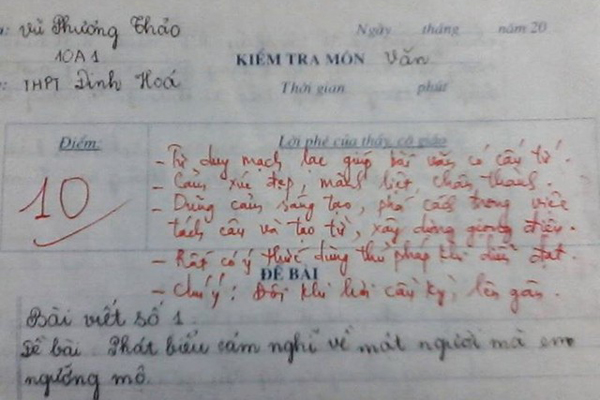 n: Vũ Phương Thảo
Ngày tháng năm 20
10A1
KIỂM TRA MÔN Văn
: THPT Định Hoá
Thời gian phút
Điểm:
Lời phê của thầy, cô giáo
10
- Tư duy mạch lạc giúp bài văn có cấu tứ.
- Cảm xúc đẹp, mãnh liệt, chân thành.
- Dũng cảm, sáng tạo, phá cách trong việc
tách câu và tạo từ, xây dựng giọng điệu.
- Rất có ý thức dùng thủ pháp khi diễn đạt.
ĐỀ BÀI
- Chú ý: Đôi khi hơi cầu kỳ, lên gân.
Bài viết số 1.
Đề bài. Phát biểu cảm nghĩ về một người mà em
ngưỡng mộ.